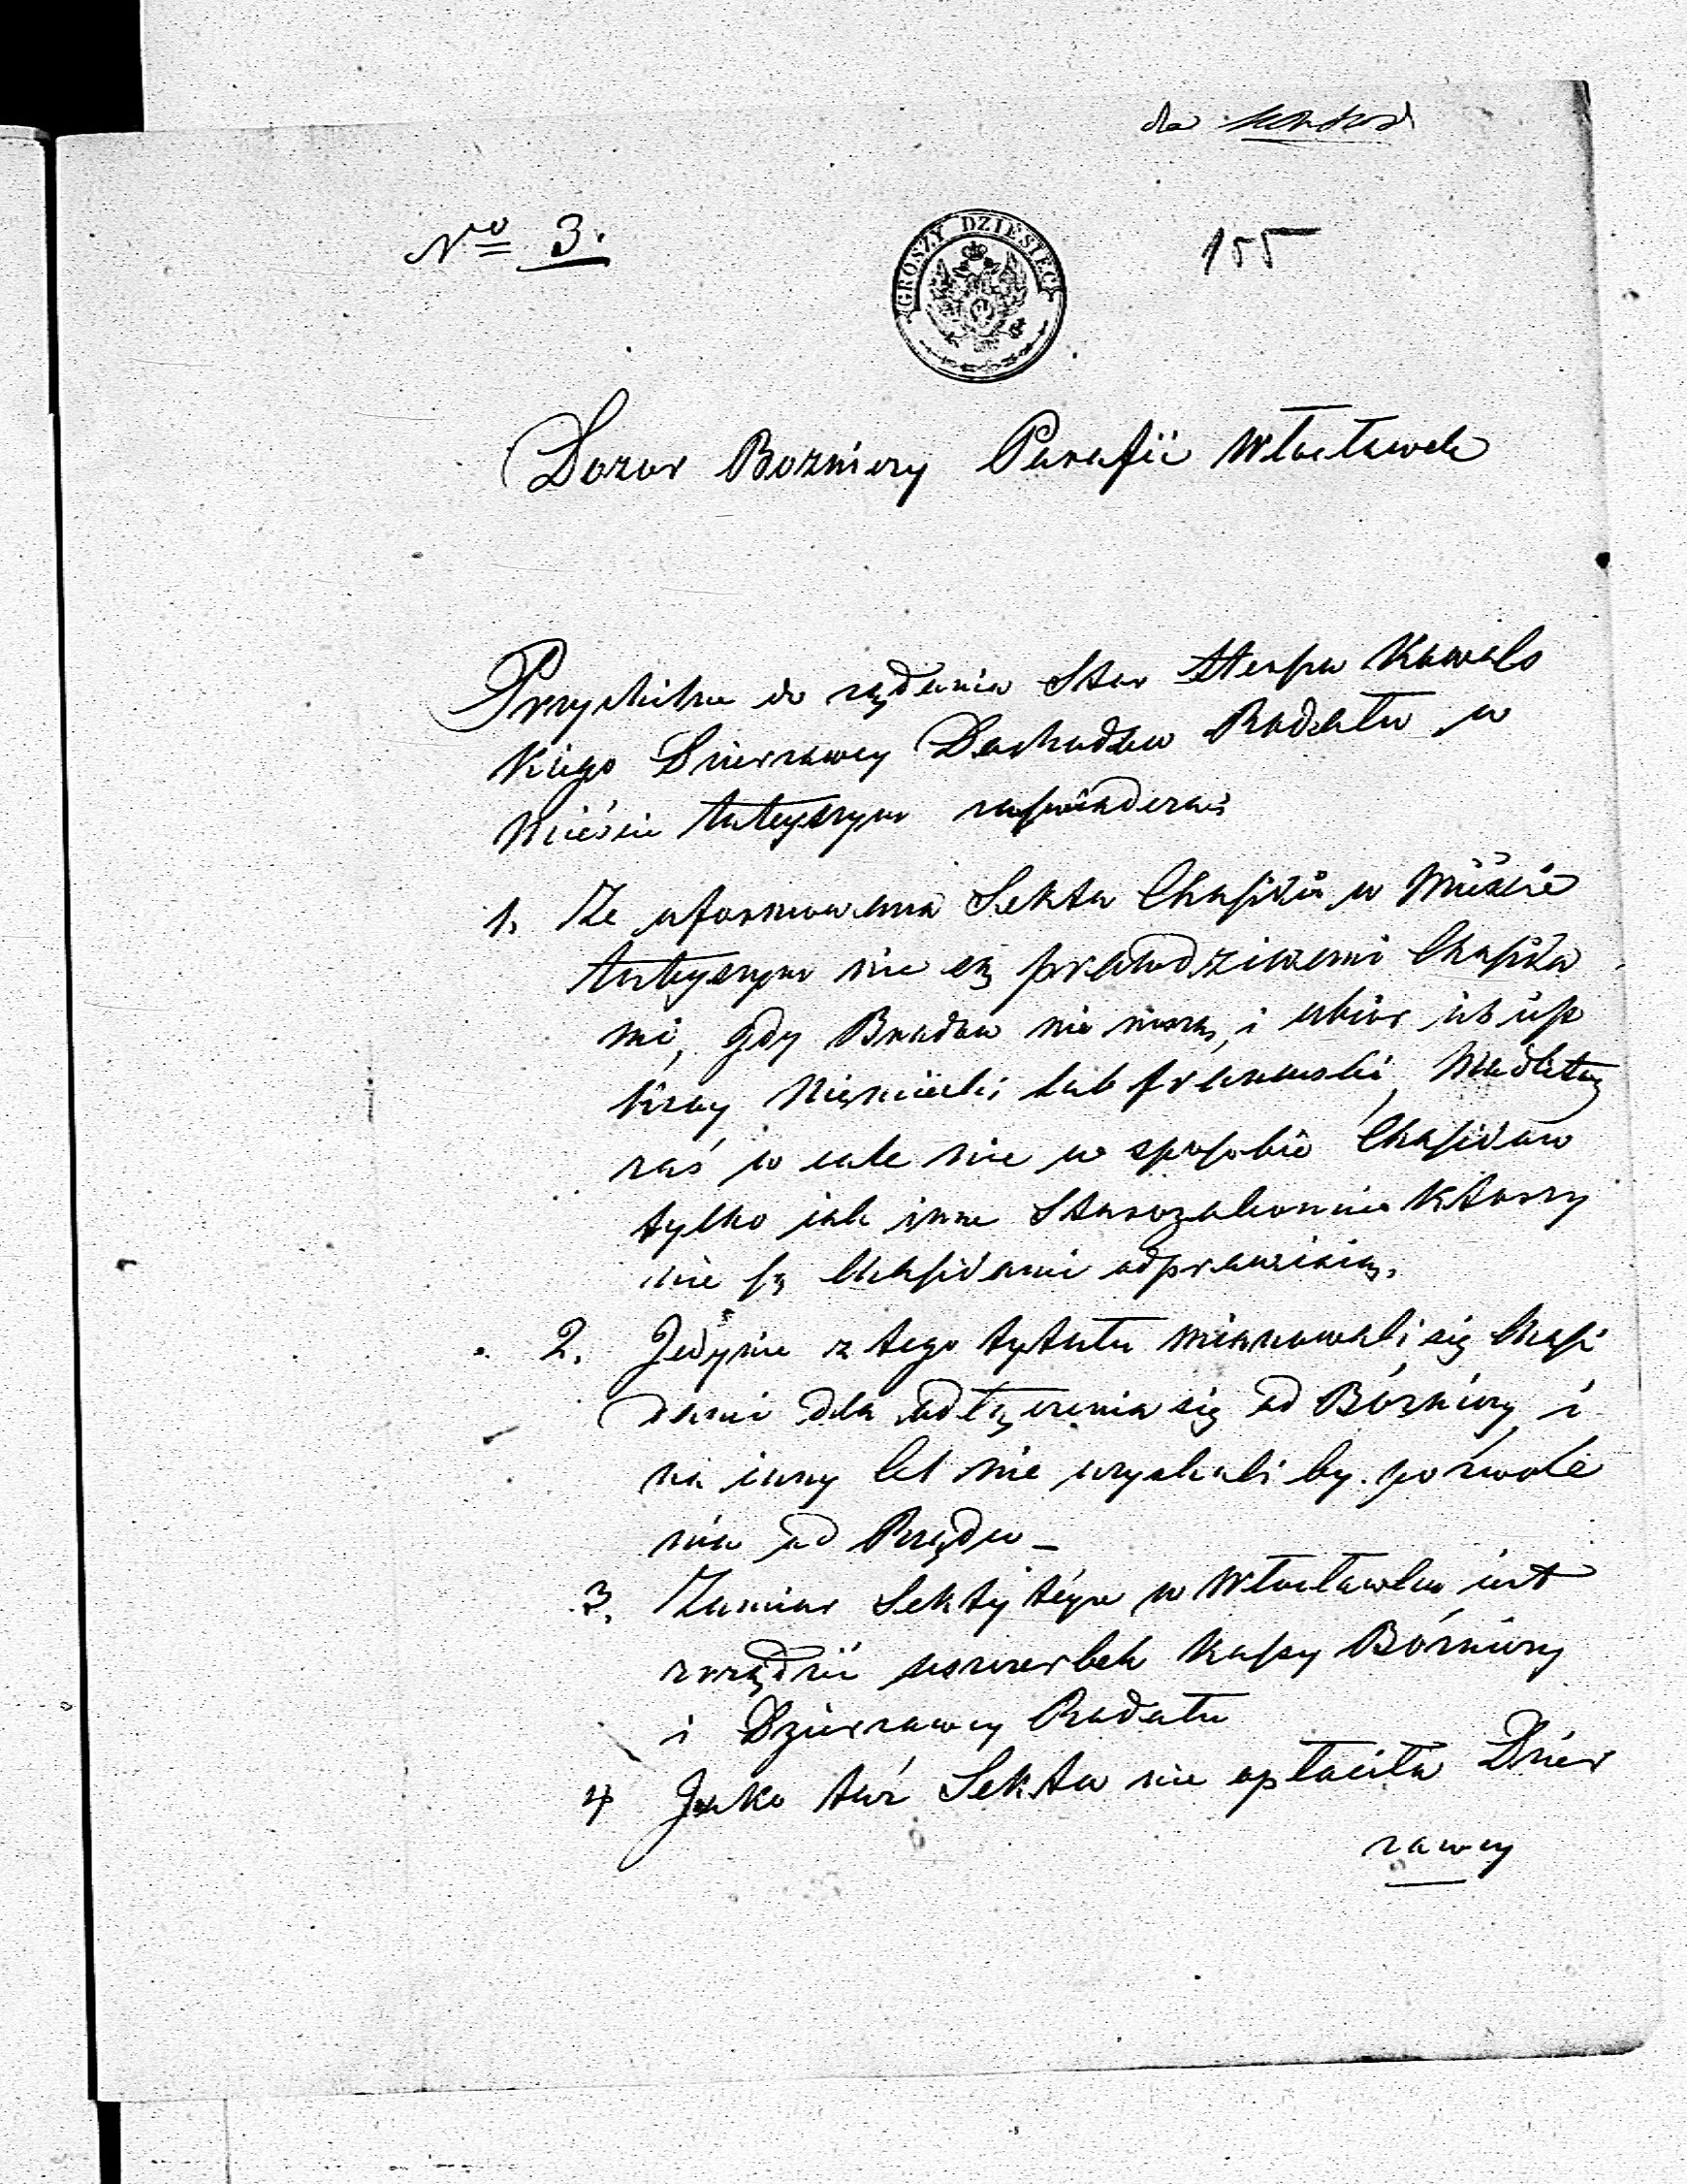 dla
No 3.
GROSZY DZIESIĘĆ
155
Dozor Bozniczy Parafii Włocławek
Przychilne do rządania Star Herspa Kowals
kiego Dzierzawcy Dochodów Rodatu w
Mieście tuteyszym zaswiadcza:
1. Ze uformowana Sekta Chasidów w Mieście
tuteyszym nie są prawdziwemi Chasida
mi, gdy Brodow nie noszą, i ubior ich iest
kray Niemiecki lub francuski, Modlitwy
zaś w cale nie w sposobie Chasidow
tylko iak inne Starozakonnie którzy
nie są Chasidami odprawiaią.
2. Jedynie z tego tytułu mianowali się Chasi
dami dla odłączenia się od Bóżnicy i
na inny cel nie uzyskali by pozwole
nia od Rządu –
3. Zamiar Sekty téyże w Włocławku iest
zrządzić uszczerbek Kassy Bóżniczy
i Dzierzawcy Rodatu
4 Jako taż Sekta nie opłaciła Dzier
zawcy